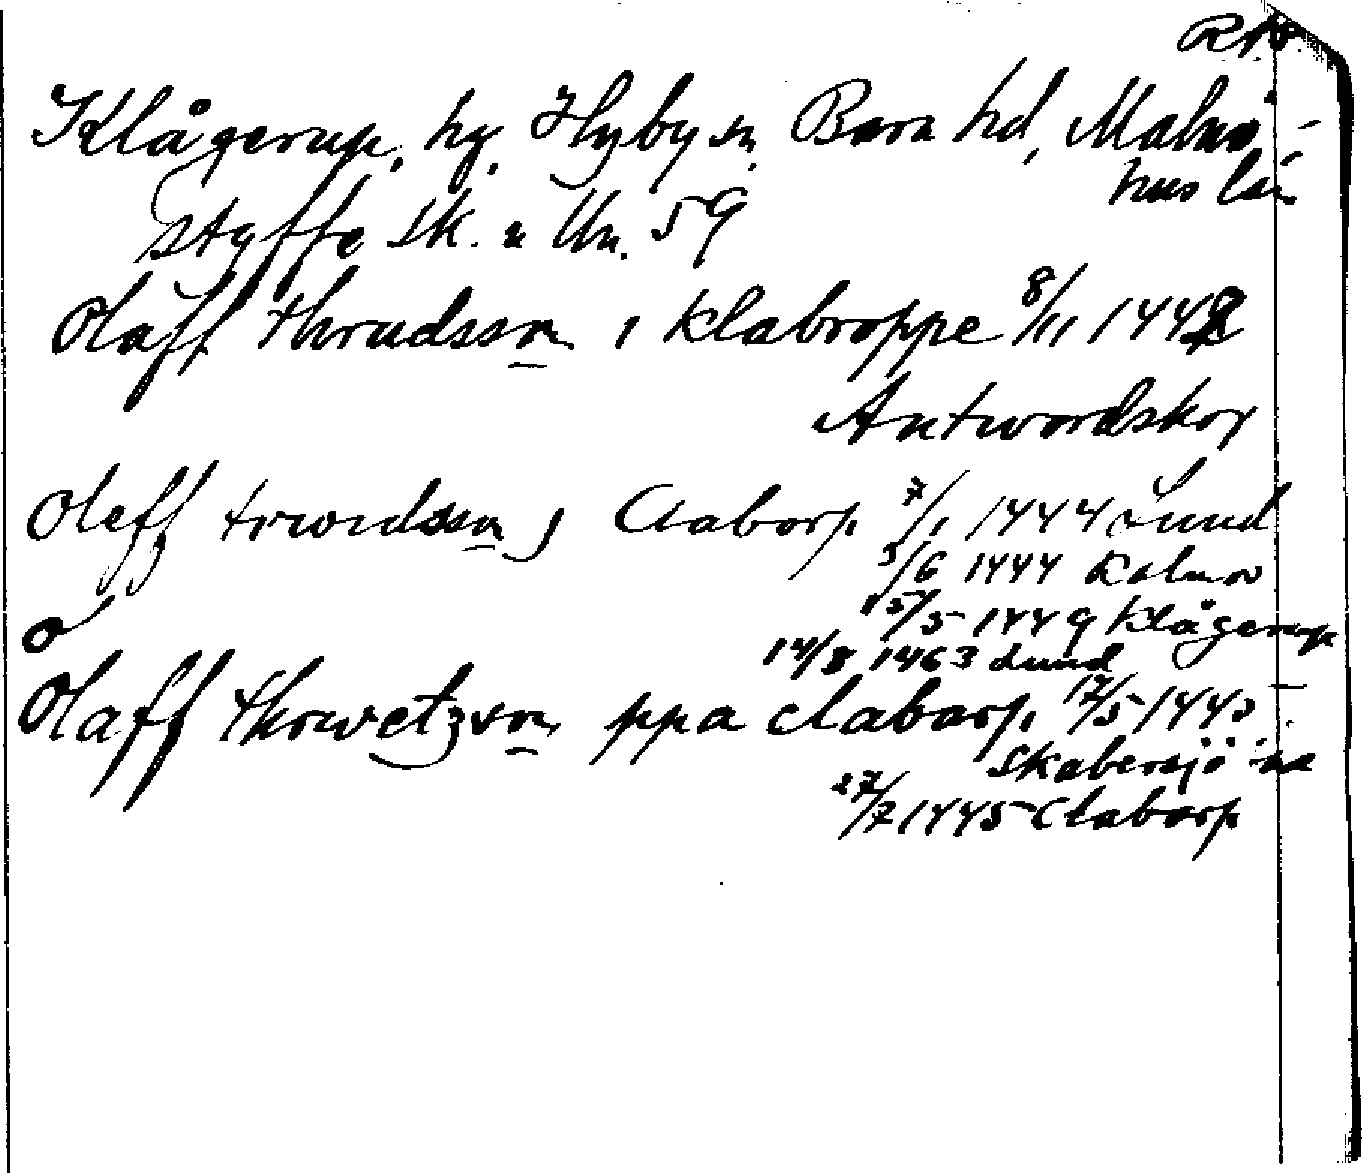 Klågerup, hg, Hyby sn, Bara hd, Malmö-
hus län
Styffe Sk. u Un. 59
Olaff thrudsson i Klabroppe 8/11 1442
Antwordskog
Oleff trwidsson j Claborp 7/1 1444 Lund
3/6 1444 Kalmar
15/5 1449 Klågerup
14/8 1463 Lund
Olaff thrwetzson ppa clabarp 17/5 1445
Skabersjö
27/7 1445 Clabarp